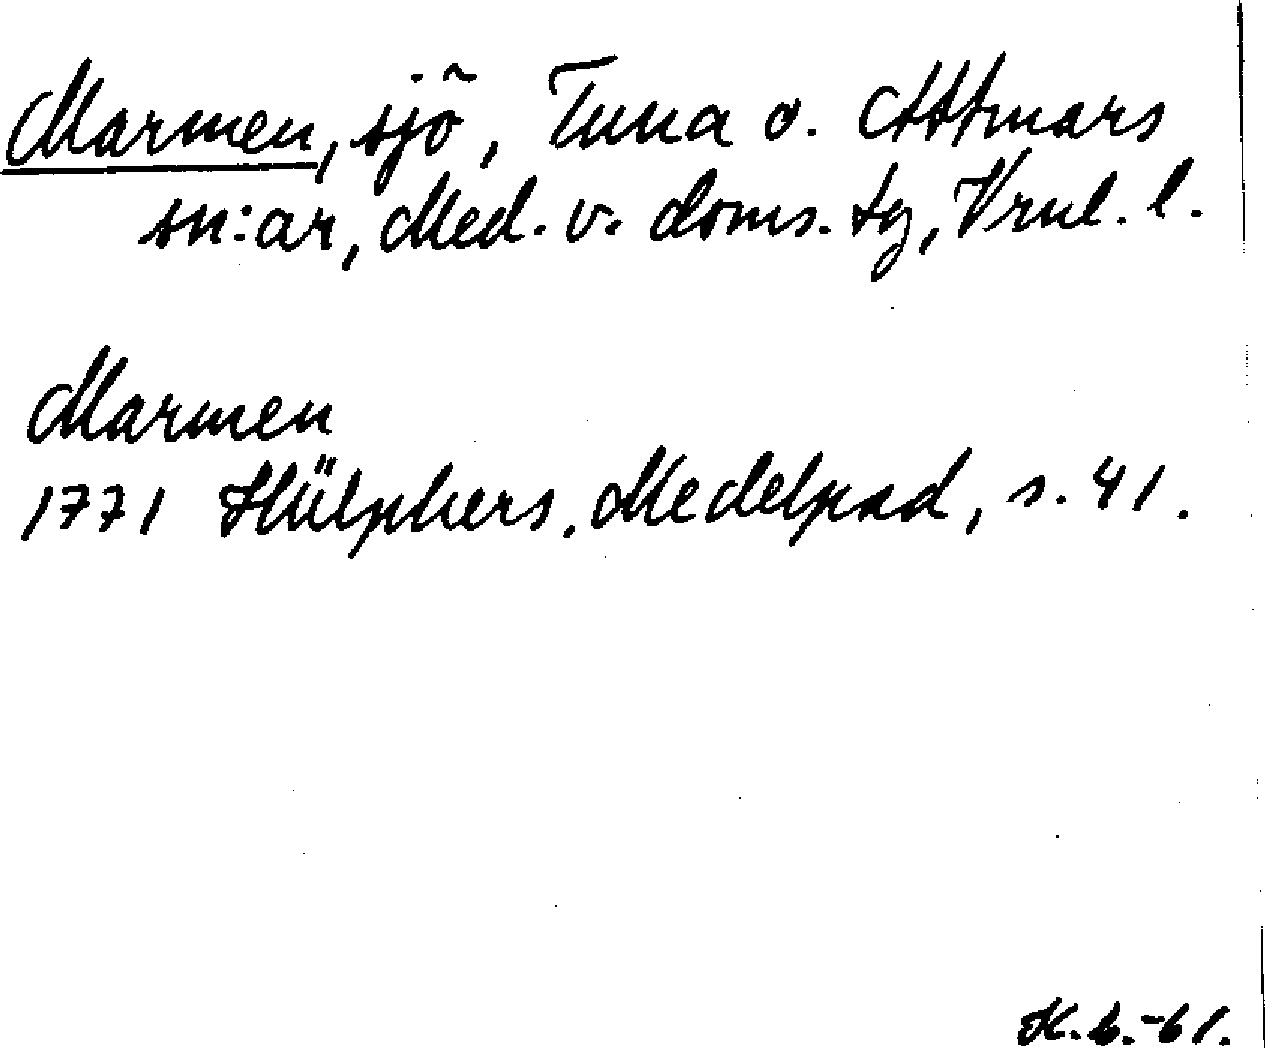 Marmen, sjö, Tuna o. Attmars
sn:ar, Med. v. doms. tg, Vrnl. l.
Marmen
1771 Hülphers, Medelpad, s. 41.
K.b.-61.